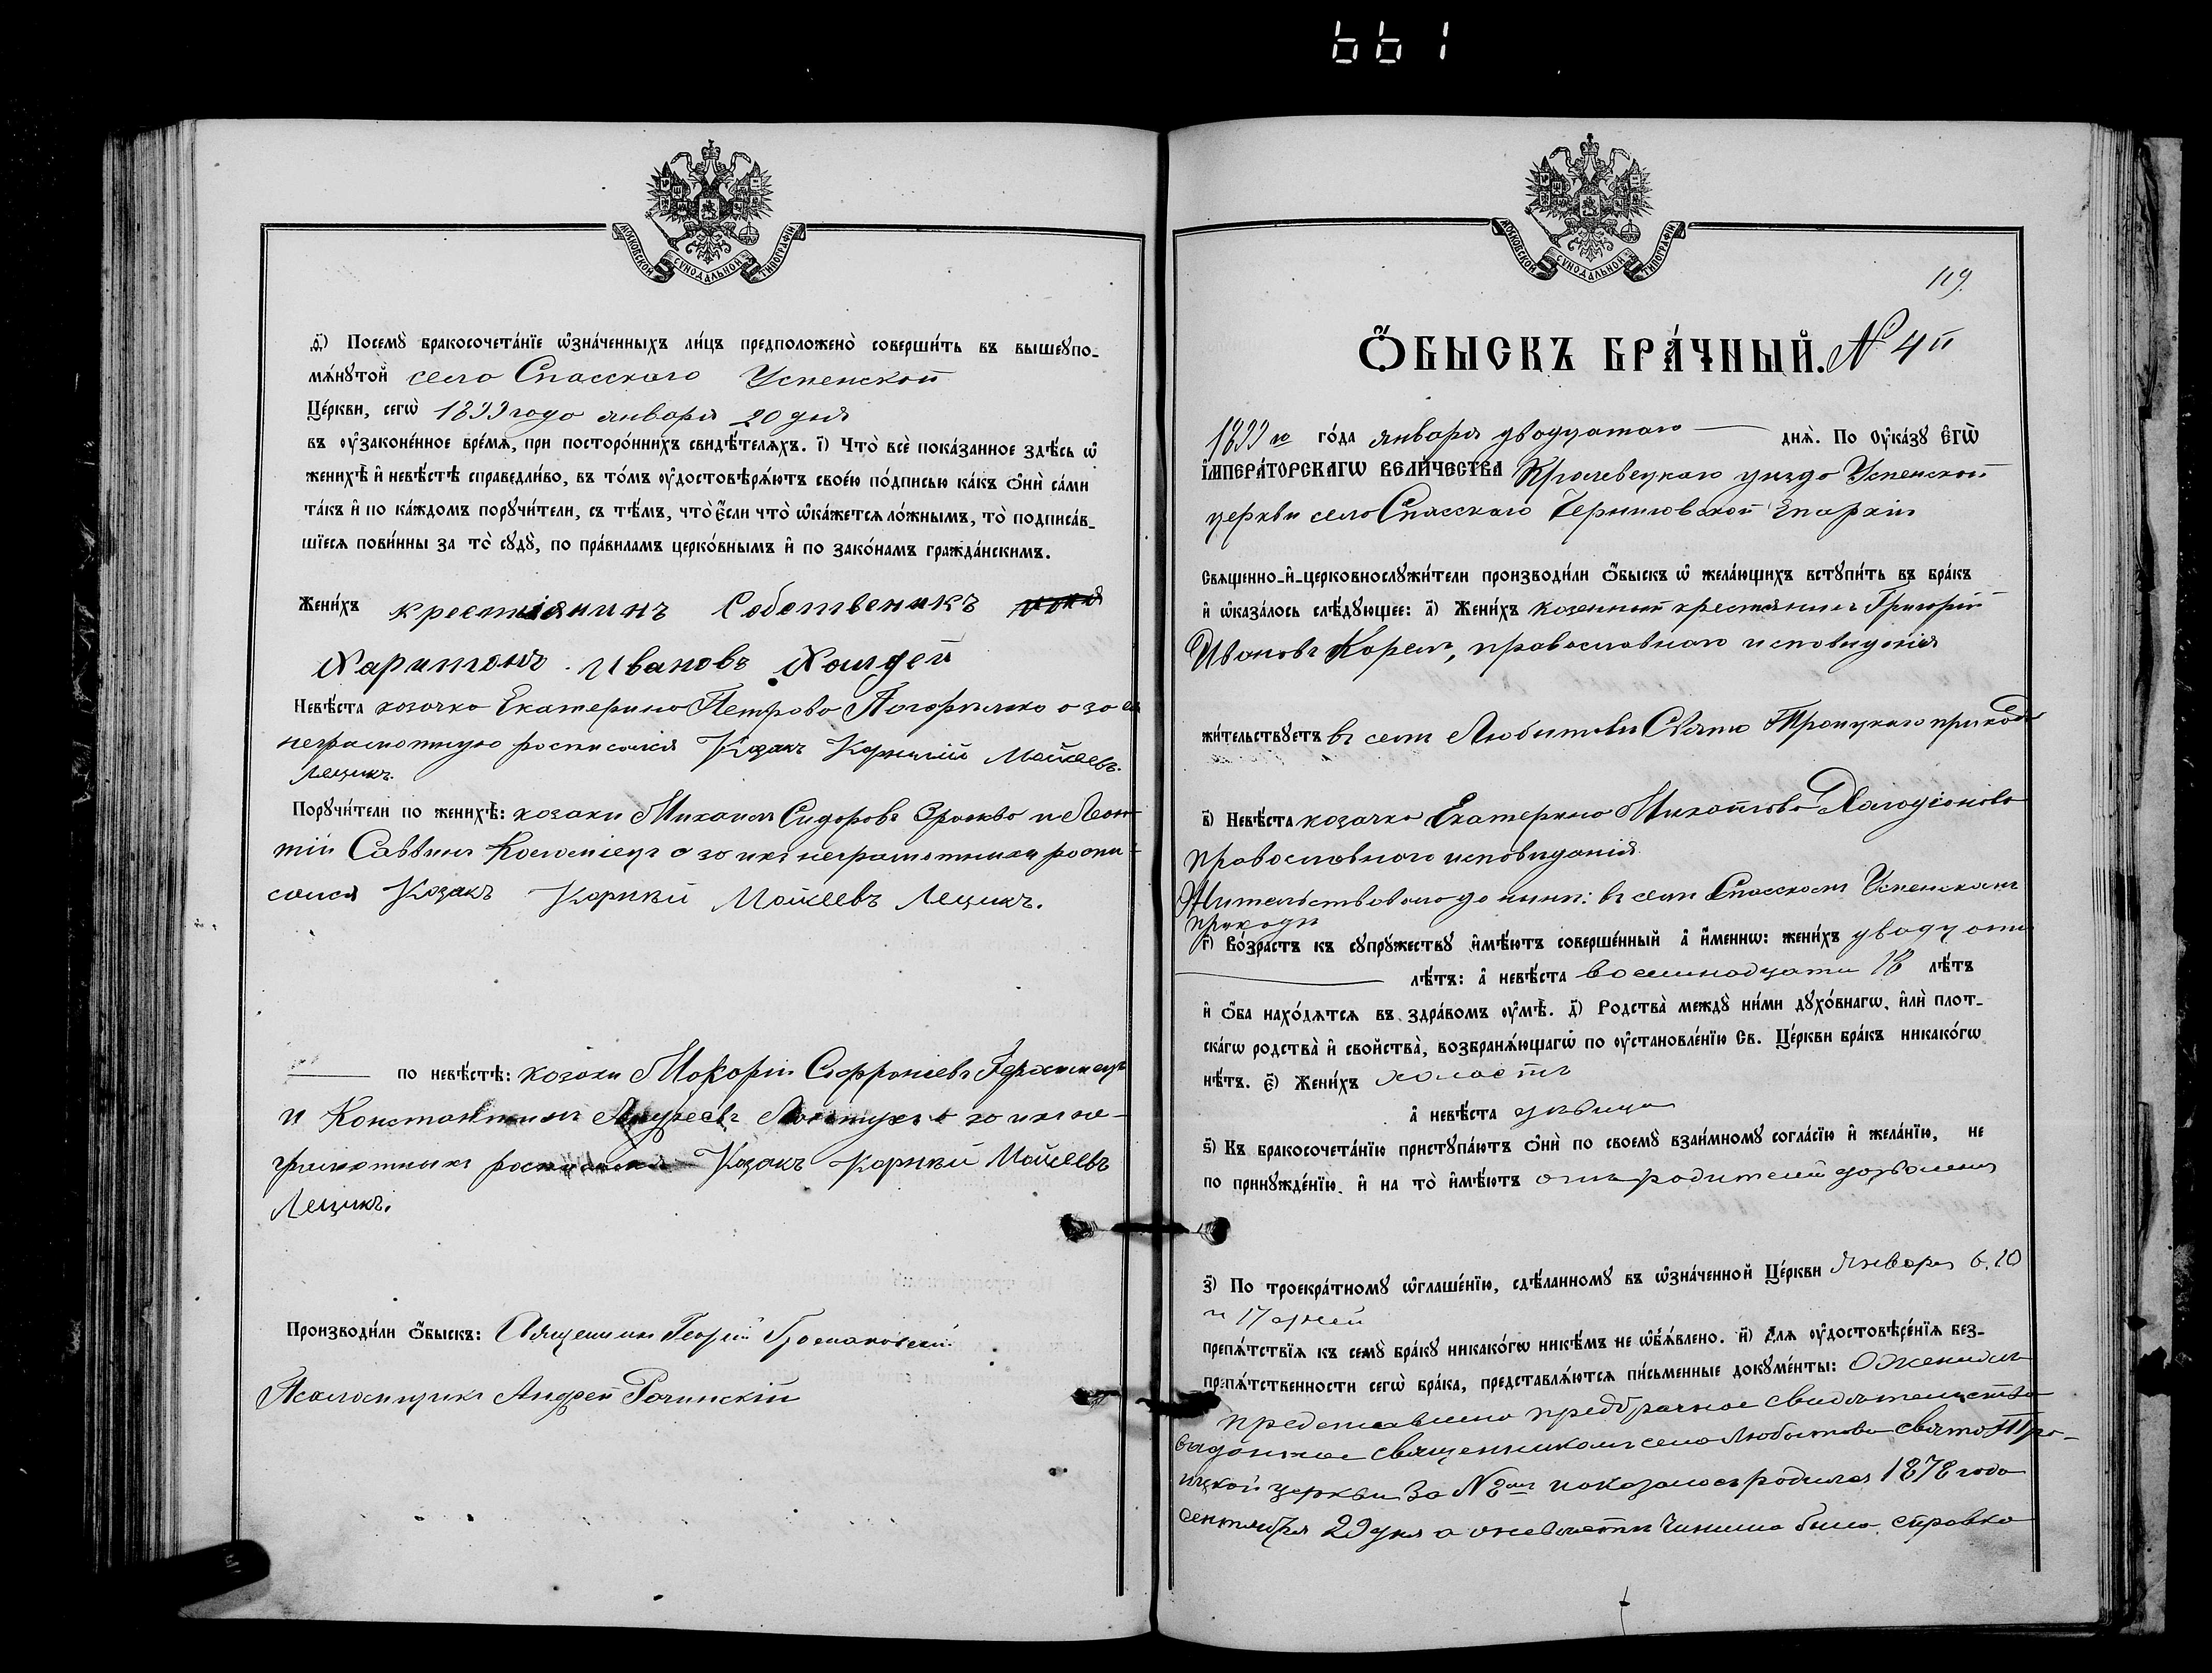 661
МОСКОВСКОЙ СѴНОДАЛЬНОЙ ТИПОГРАФІИ
д҃і) Посемꙋ̀ бракосочета́нїе ѡ҆зна́ченныхъ ли́цъ предположено̀ соверши́ть въ вышеꙋпо-
мѧ́нꙋтой село Спасскаго Успенской
Це́ркви, сегѡ̀ 1899 года января 20 дня
въ ᲂу҆законе́нное вре́мѧ, при посторо́ннихъ свидѣ́телѧхъ. і҃) Что̀ всѐ пока́занное здѣ́сь ѡ҆
женихѣ̀ и҆ невѣ́стѣ справедли́во, въ то́мъ ᲂу҆достовѣрѧ́ютъ свое́ю по́дписью ка́къ ѻ҆нѝ са́ми
та́къ и҆ по ка́ждомъ порꙋчи́тели, съ тѣ́мъ, что̀ є҆́сли что̀ ѡ҆ка́жетсѧ ло́жнымъ, то̀ подписа́в-
шїесѧ пови́нны за то̀ сꙋдꙋ̀, по пра́виламъ церко́внымъ и҆ по зако́намъ гражда́нскимъ.
Жени́хъ крестіянинъ Собственикъ
Харитонъ Ивановъ
Невѣ́ста козачка Екатерина Петрова а за ея
неграмотную росписался Козакъ Корнилій Мойсеевъ
Лещикъ.
Порꙋчи́тели по женихѣ̀: козаки Михаилъ Сидоровъ и Леон-
тій Саввинъ а за ихъ неграмотныхъ роспи-
сался Козакъ Корнѣй Мойсеевъ Лещикъ.
по невѣ́стѣ: козаки Макарій Софроніевъ
и Константинъ Андреевъ а за ихъ не-
грамотныхъ росписался Козакъ Корнѣй Мойсеевъ
Лещикъ.
Производи́ли ѻ҆́быскъ: Священникъ Георгій
Псаломщикъ Андрей Рачинскій
МОСКОВСКОЙ СѴНОДАЛЬНОЙ ТИПОГРАФІИ
119.
Ѻ҆́БЫСКЪ БРА́ЧНЫЙ. № 4й
1899 го го́да января двадцатаго днѧ̀. По ᲂу҆ка́зꙋ Є҆гѡ̀
И҆МПЕРА́ТОРСКАГѠ ВЕЛИ́ЧЕСТВА Кролевецкаго уезда Успенской
церкви села Спасского Черниговской Епархіи
Свѧщенно-и҆-церковнослꙋжи́тели производи́ли ѻ҆́быскъ ѡ҆ жела́ющихъ встꙋпи́ть въ бра́къ
и҆ ѡ҆каза́лось слѣ́дꙋющее: а҃) Жени́хъ казенный крестянинъ Григорій
Ивановъ Карепъ, православнаго исповиданія
жи́тельствꙋетъ въ селѣ Любитови Свято Троицкаго прихода
в҃) Невѣ́ста козачка Екатерина Михайлова
православного исповиданія
Жительствовала до нынѣ: въ селѣ Спасскомъ Успенскомъ
приходѣ
г҃) Во́зрастъ къ сꙋпрꙋ́жествꙋ и҆мѣ́ютъ соверше́нный а҆ и҆́меннѡ: жени́хъ двадцати
лѣ́тъ: а҆ невѣ́ста восемнадцати 18 лѣ́тъ
и҆ ѻ҆́ба нахо́дѧтсѧ въ здра́вомъ ᲂу҆мѣ̀. д҃) Родства̀ междꙋ̀ ни́ми дꙋхо́внагѡ, и҆лѝ плот-
ска́гѡ родства̀ и҆ сво́йства̀, возбранѧ́ющагѡ по ᲂу҆становле́нїю Св. Це́ркви бра́къ никако́гѡ
нѣ́тъ. є҃) Жени́хъ холостъ
а҆ невѣ́ста дѣвица
ѕ҃) Къ бракосочета́нїю пристꙋпа́ютъ ѻ҆нѝ по своемꙋ̀ взаи́мномꙋ согла́сїю и҆ жела́нїю, не
по принꙋжде́нїю, и҆ на то̀ и҆мѣ́ютъ отъ родителей дозволеніе
з҃) По троекра́тномꙋ ѡ҆глаше́нїю, сдѣ́ланномꙋ въ ѡ҆зна́ченной Це́ркви января 6, 10
и 17 дней
препѧ́тствїѧ къ семꙋ̀ бра́кꙋ никако́гѡ никѣ́мъ не ѡ҆б̾ѧ́влено. и҃) Длѧ ᲂу҆достовѣре́нїѧ без-
препѧ́тственности сегѡ̀ бра́ка, представлѧ́ютсѧ пи́сьменные докꙋме́нты: О женихѣ
представлено предбрачное свидѣтельство
выданное священникомъ села Любитова Свято Тро-
ицкой церкви за № 8мъ показалось родился 1878 года
сентября 29 дня а о невѣсти чинима била справка